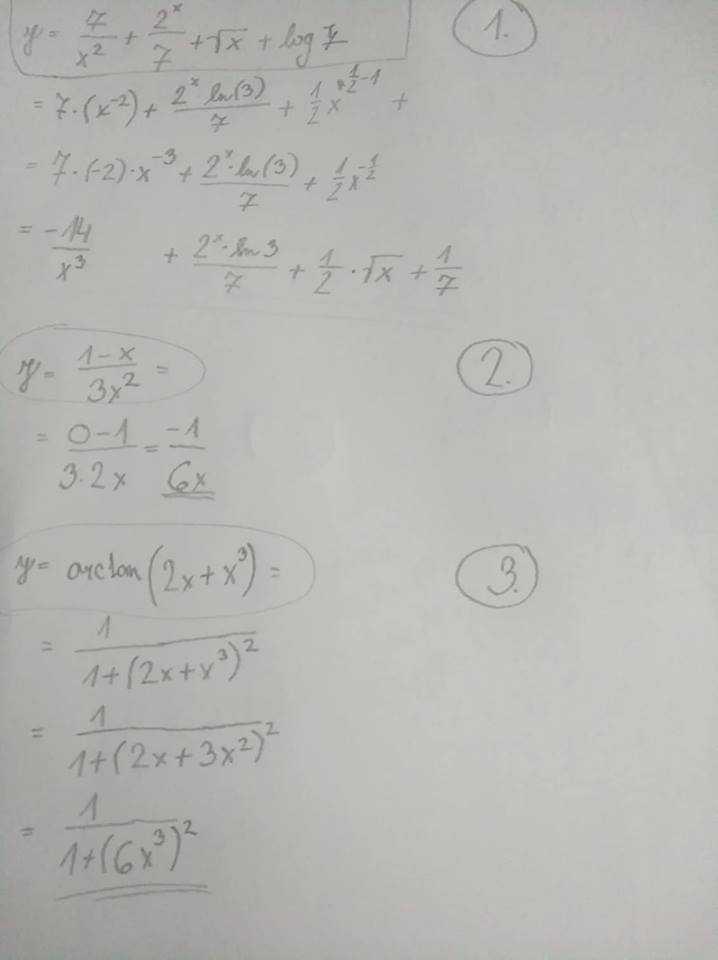 y = 7/x² + 2ˣ/7 + √x + log 7 1.
= 7·(x⁻²) + 2ˣ ln(3)/7 + 1/2 x^(1/2 - 1) +
= 7·(-2)·x⁻³ + 2ˣ·ln(3)/7 + 1/2 x^(-1/2)
= -14/x³ + 2ˣ·ln 3/7 + 1/2 · √x + 1/7
y = (1-x)/(3x²) = 2.
= (0-1)/(3·2x) = -1/(6x)
y = arctan(2x + x³) = 3.
= 1/(1+(2x+x³)²)
= 1/(1+(2x+3x²)²)
= 1/(1+(6x³)²)